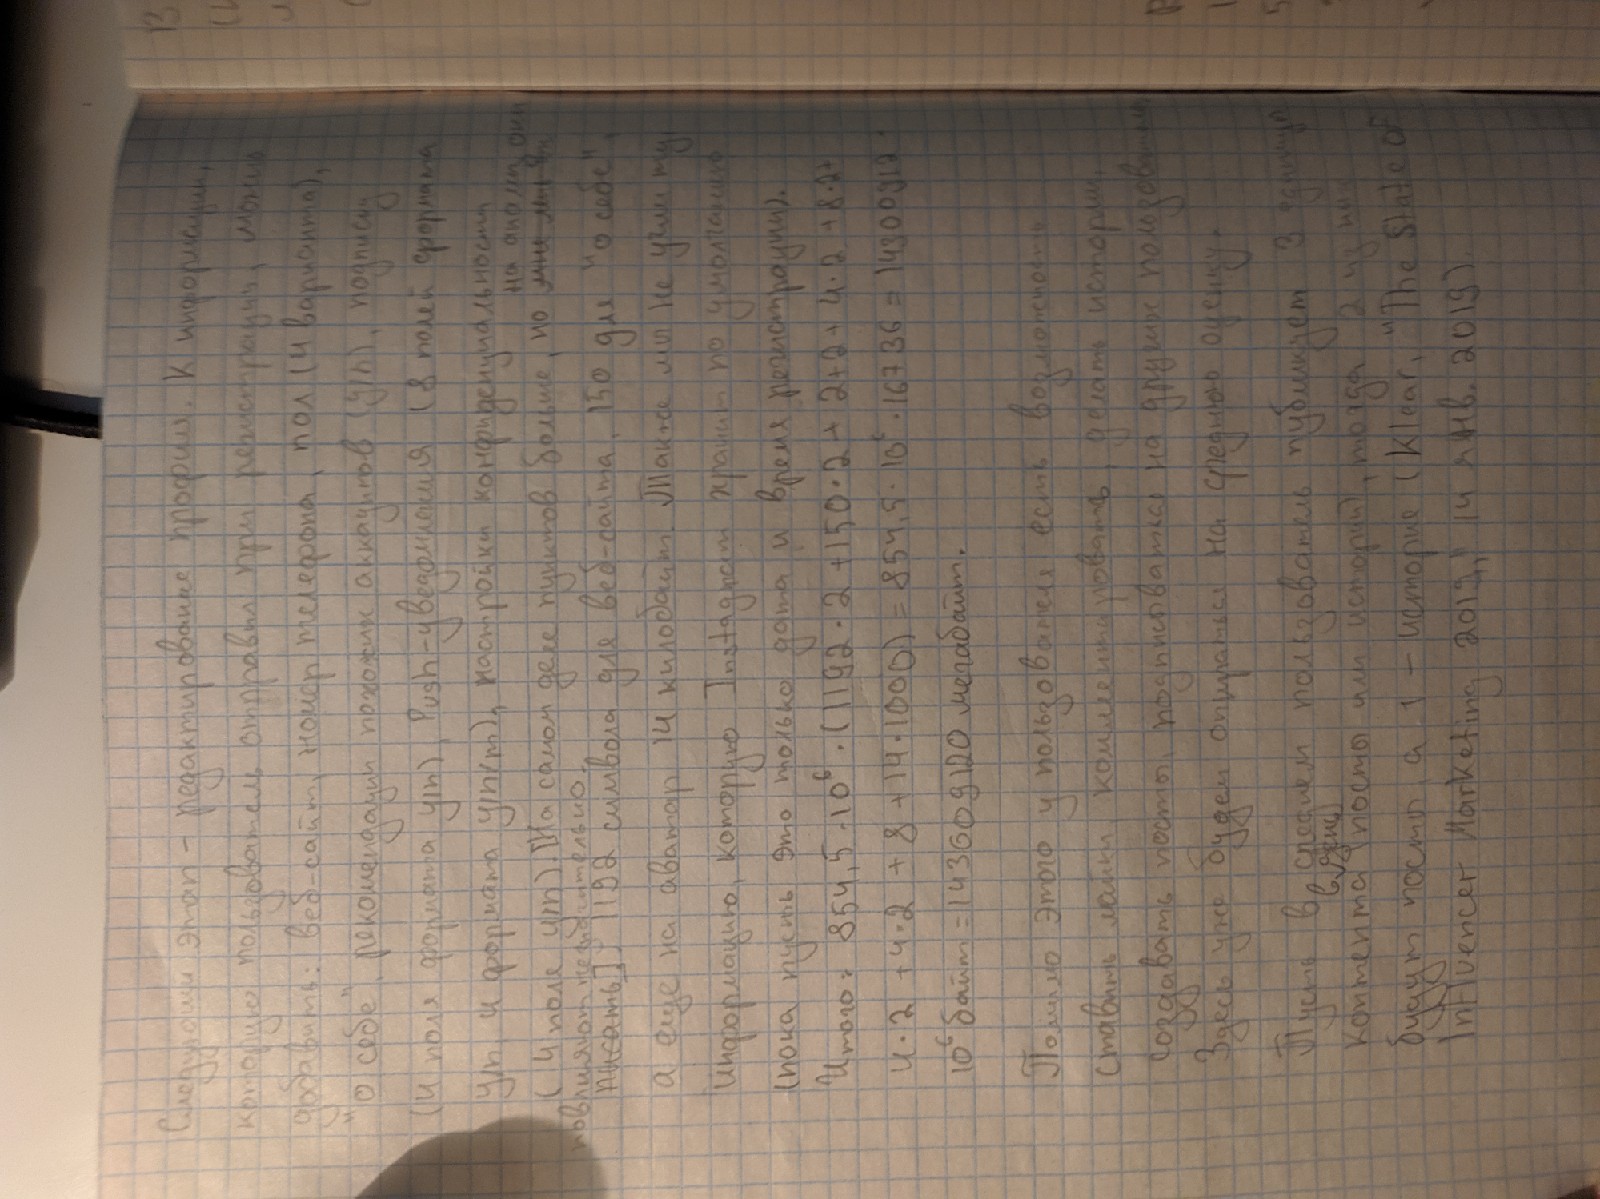 Следующий этап - редактирование профиля. К информации,
которую пользователь отправил при регистрации, можно
добавить: веб-сайт, номер телефона, пол (4 варианта),
"о себе", рекомендации похожих аккаунтов (y/n), подписки
(4 поля формата y/n), Push-уведомления (8 полей формата
y/n и формата y/n/m), настройки конфиденциальности
(4 поля y/n). [На самом деле пунктов больше, но на анализ они
повлияют незначительно.
192 символа для веб-сайта, 150 для "о себе",
а еще на аватар 14 килобайт. Также мы не учли ту
информацию, которую Instagram хранит по умолчанию
(пока пусть это только дата и время регистрации).
Итого: 854,5·10⁶·(1192·2+150·2+2+2+4·2+8·2+
4·2+4·2+8+14·1000)=854,5·10⁶·16736=14300912·
10⁶ байт=143609120 мегабайт.
Помимо этого у пользователя есть возможность
ставить лайки, комментировать, делать истории,
создавать посты, подписываться на других пользователей.
Здесь уже будем опираться на среднюю оценку.
Пусть в среднем пользователь публикует 3 единицы
в день
контента (посты или истории), тогда 2 из них
будут посты, а 1 - история (Klear, "The State of
Influencer Marketing 2019," 14 янв. 2019).
13